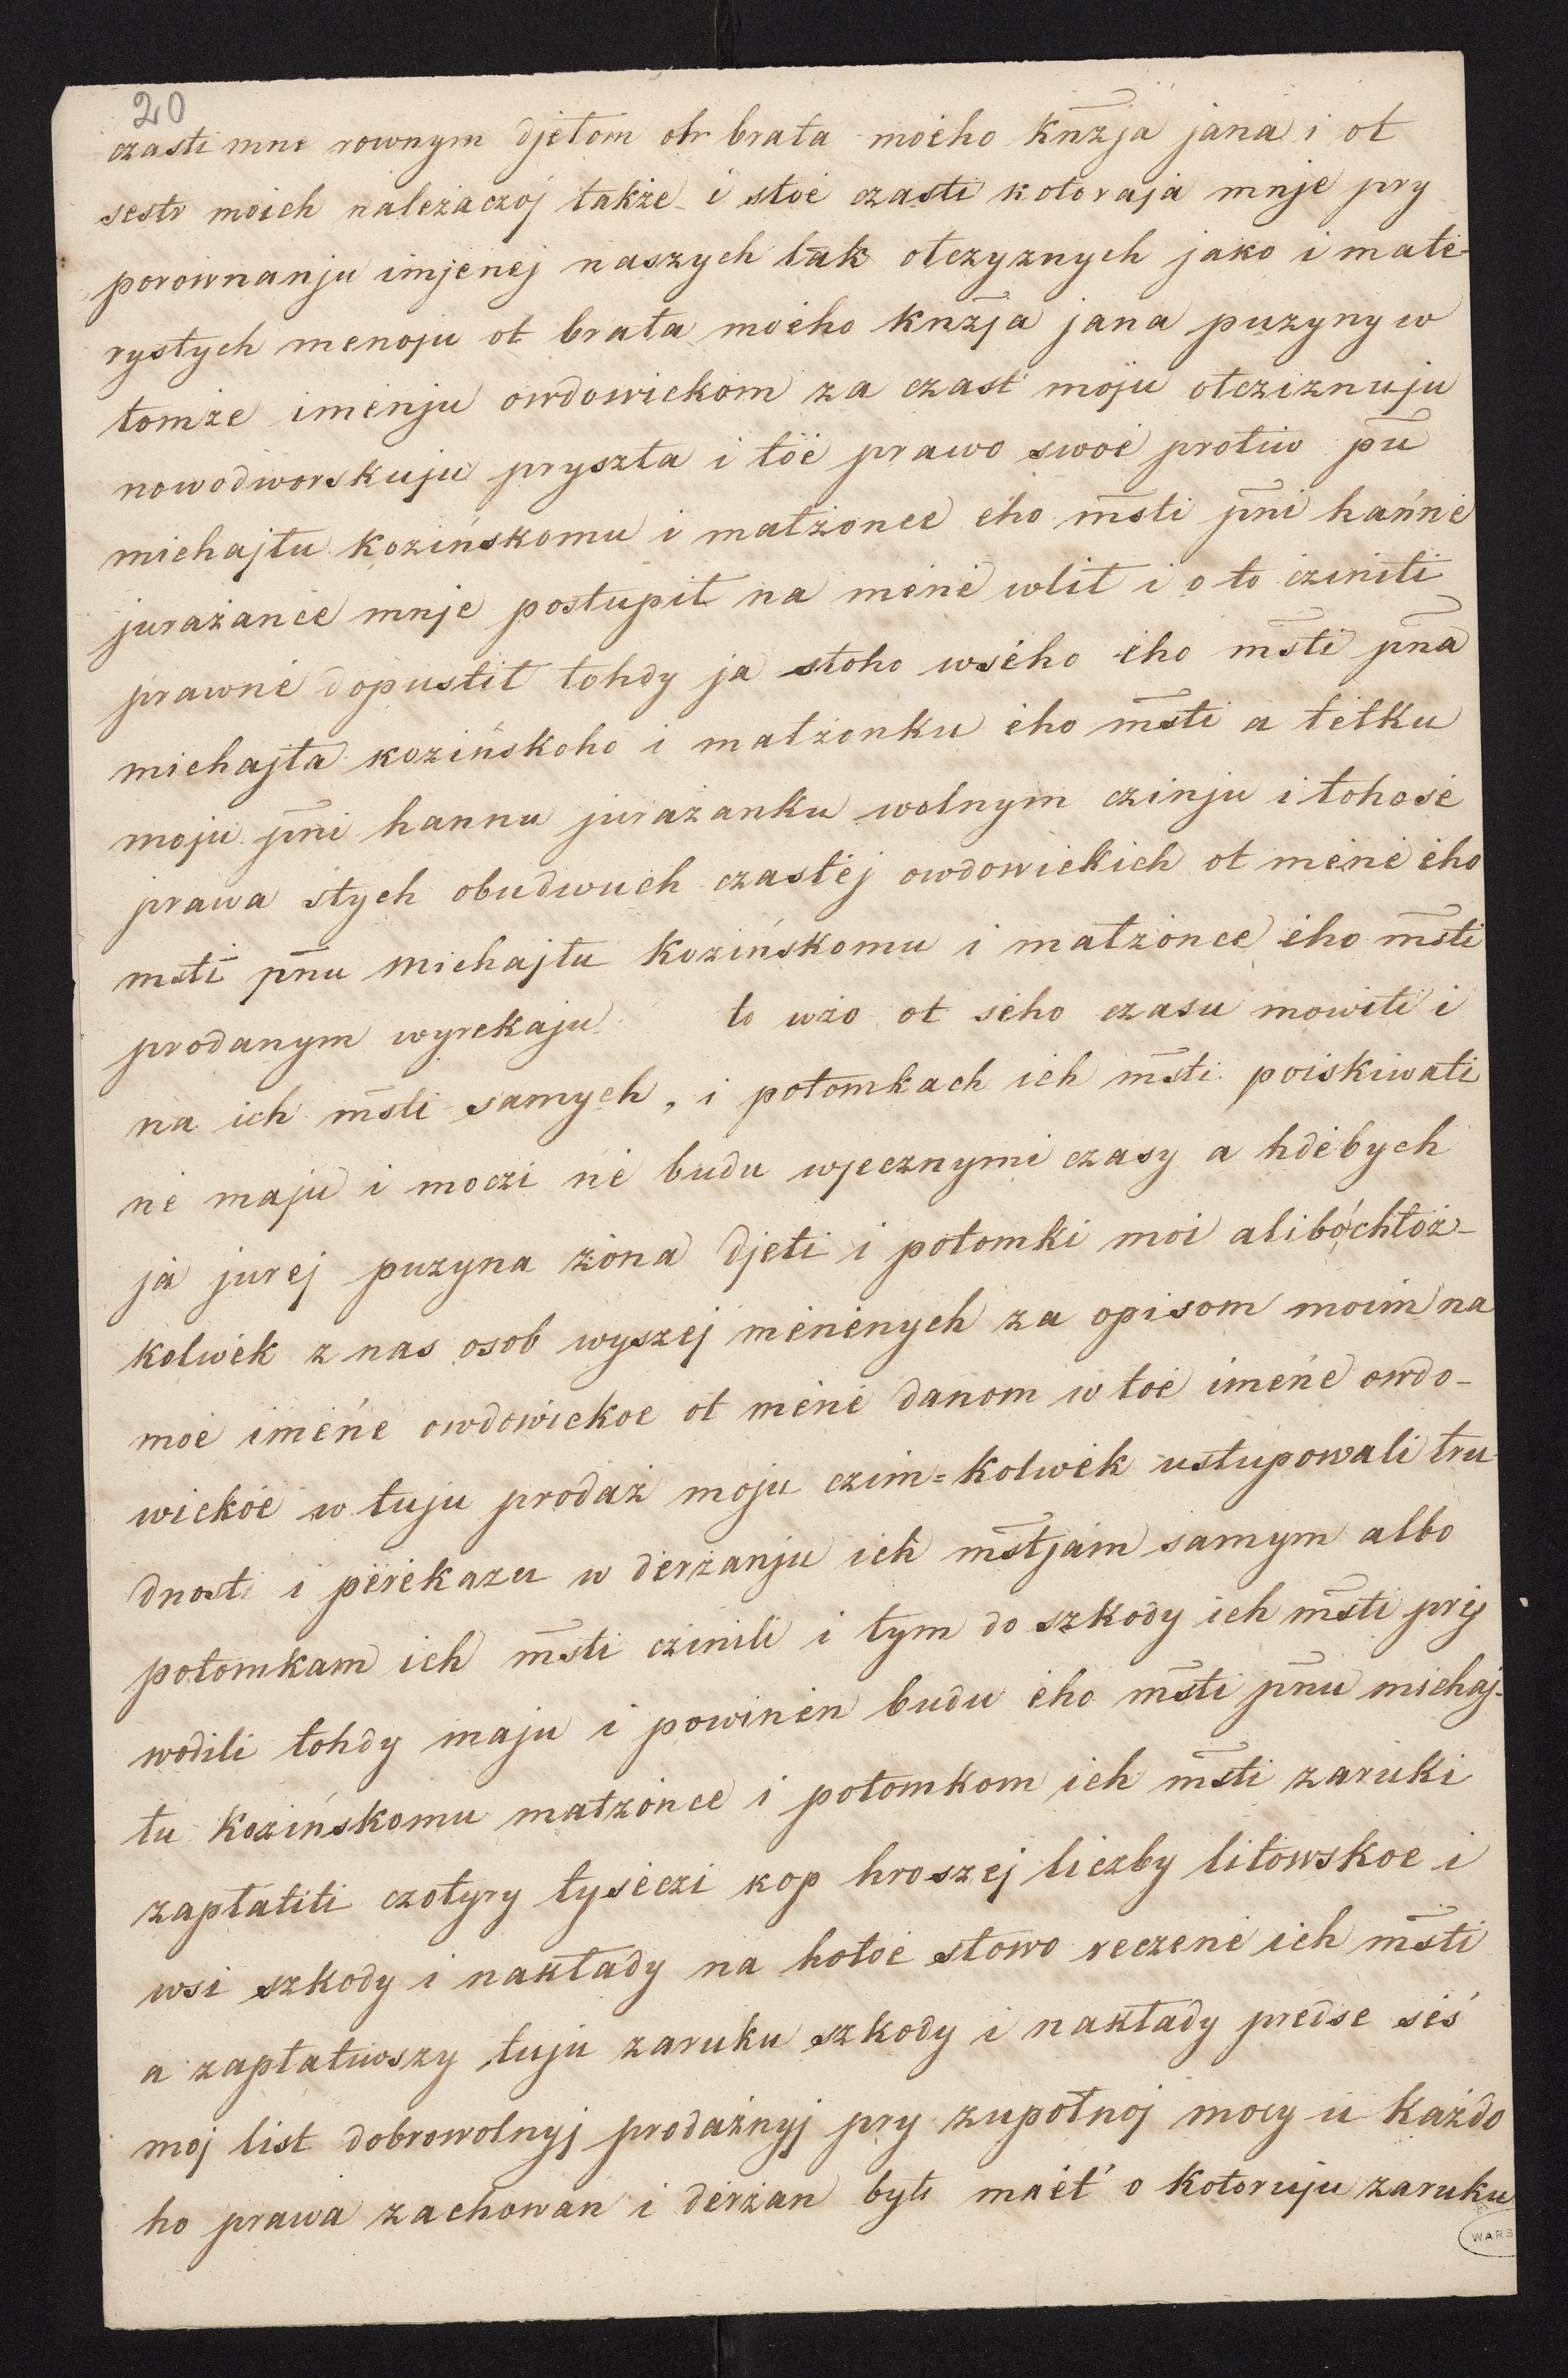 20
czasti mne rownym djetom otr brata moėho kn̄zja jana i ot
sestr moich należaczoj także i stoė czasti kotoraja mnje pry
porownanju imjenej naszych tak otczyznych jako i mate-
rystych menoju ot brata moėho kn̄zja jana puzyny w
tomże imenju owdowickom za czast moju otcziznuju
nowodworskuju pryszła i toė prawo swoė protiw pn̄u
michajłu kozińskomu i małżonce ėho m̄sti pn̄i hańnė
jurażance mnje postupił na mėnė wlił i o to cziniti
prawnė dopustił tohdy ja stoho wsėho ėho m̄sti pn̄a
michajła kozińskoho i małżonku ėho m̄sti a tetku
moju pn̄i hannu jurażanku wolnym czinju i tohosė
prawa stych obudwuch czastėj owdowickich ot mėnė ėho
msti pn̄u michajłu Kozińskomu i małżonce ėho m̄sti
prodanym wyrekaju to wżo ot sėho czasu mowiti i
na ich m̄sti samych, i potomkach ich m̄sti poiskiwati
nė maju i moczi nė budu wjecznymi czasy a hdėbych
ja jurej puzyna żona djeti i potomki moi alibochtoż-
kolwėk z nas osob wyszej mėnėnych za opisom moim na
moė imėńe owdowickoe ot mėnė danom w toė imėńe owdo-
wickoė w tuju prodaż moju czim=kolwėk ustupowali tru-
dnosti i pėrėkazu w dėrżanju ich m̄stjam samym albo
potomkam ich m̄sti czinili i tym do szkody ich m̄sti prij
wodili tohdy maju i powinėn budu ėho m̄sti pn̄u michaj-
łu Kozińskomu małżonce i potomkom ich m̄sti zaruki
zapłatiti czotyry tysėczi kop hroszej liczby litowskoė i
wsi szkody i nakłady na hołoė słowo reczenė ich m̄sti
a zapłatiwszy tuju zaruku szkody i nakłady predse sėś
moj list dobrowolnyj prodażnyj pry zupołnoj mocy u każdo
ho prawa zachowan i dėrżan byti maėt' o kotoruju zaruku
WARS